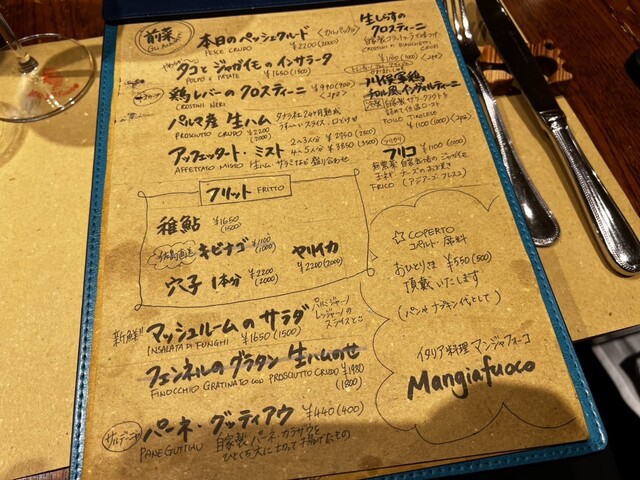 前菜
GLI ANTIPASTI
本日のペッシェクルード <カルパッチョ>
PESCE CRUDO ¥2200(2000)
タコとジャガイモのインサラータ
POLPO e PATATE ¥1650(1500)
鶏レバーのクロスティーニ
CROSTINI NERI <2pz>
パルマ産 生ハム
PROSCIUTTO CRUDO ¥2200(2000)
アッフェッタート・ミスト 2〜3人分 ¥2750(2500)
4〜5人分 ¥3850(3500)
AFFETTATO MISTO 生ハム・サラミなど盛り合わせ
フリット FRITTO
稚鮎 ¥1650(1500)
キビナゴ ¥1100(1000)
ヤリイカ ¥2200(2000)
穴子 1本分 ¥2200(2000)
新鮮!! マッシュルームのサラダ
INSALATA DI FUNGHI ¥1650(1500)
パルミジャーノ
レッジャーノの
スライスと
フェンネルのグラタン 生ハムのせ
FINOCCHIO GRATINATO con PROSCIUTTO CRUDO ¥1980(1800)
サルデーニャ パーネ・グッティアウ ¥440(400)
PANE GUTTIAU 自家製パーネ・カラザウを
ひとくち大に切って揚げたもの
生しらすの
クロスティーニ
CROSTINI DI BIANCHETTI CRUDI
フリコ ¥1100(1000)
FRICO (アジアーゴ・フレスコ)
☆ COPERTO
コペルト・席料
おひとりさま ¥550(500)
頂戴いたします
(パン・ナプキン代として)
イタリア料理 マンジャフォーコ
Mangiafuoco